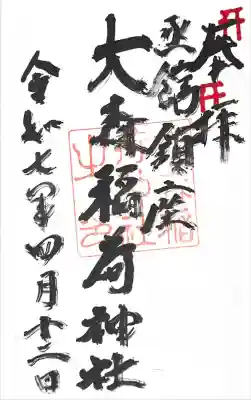 奉拝
鎮座
大森稲荷神社
令和七年四月十二日